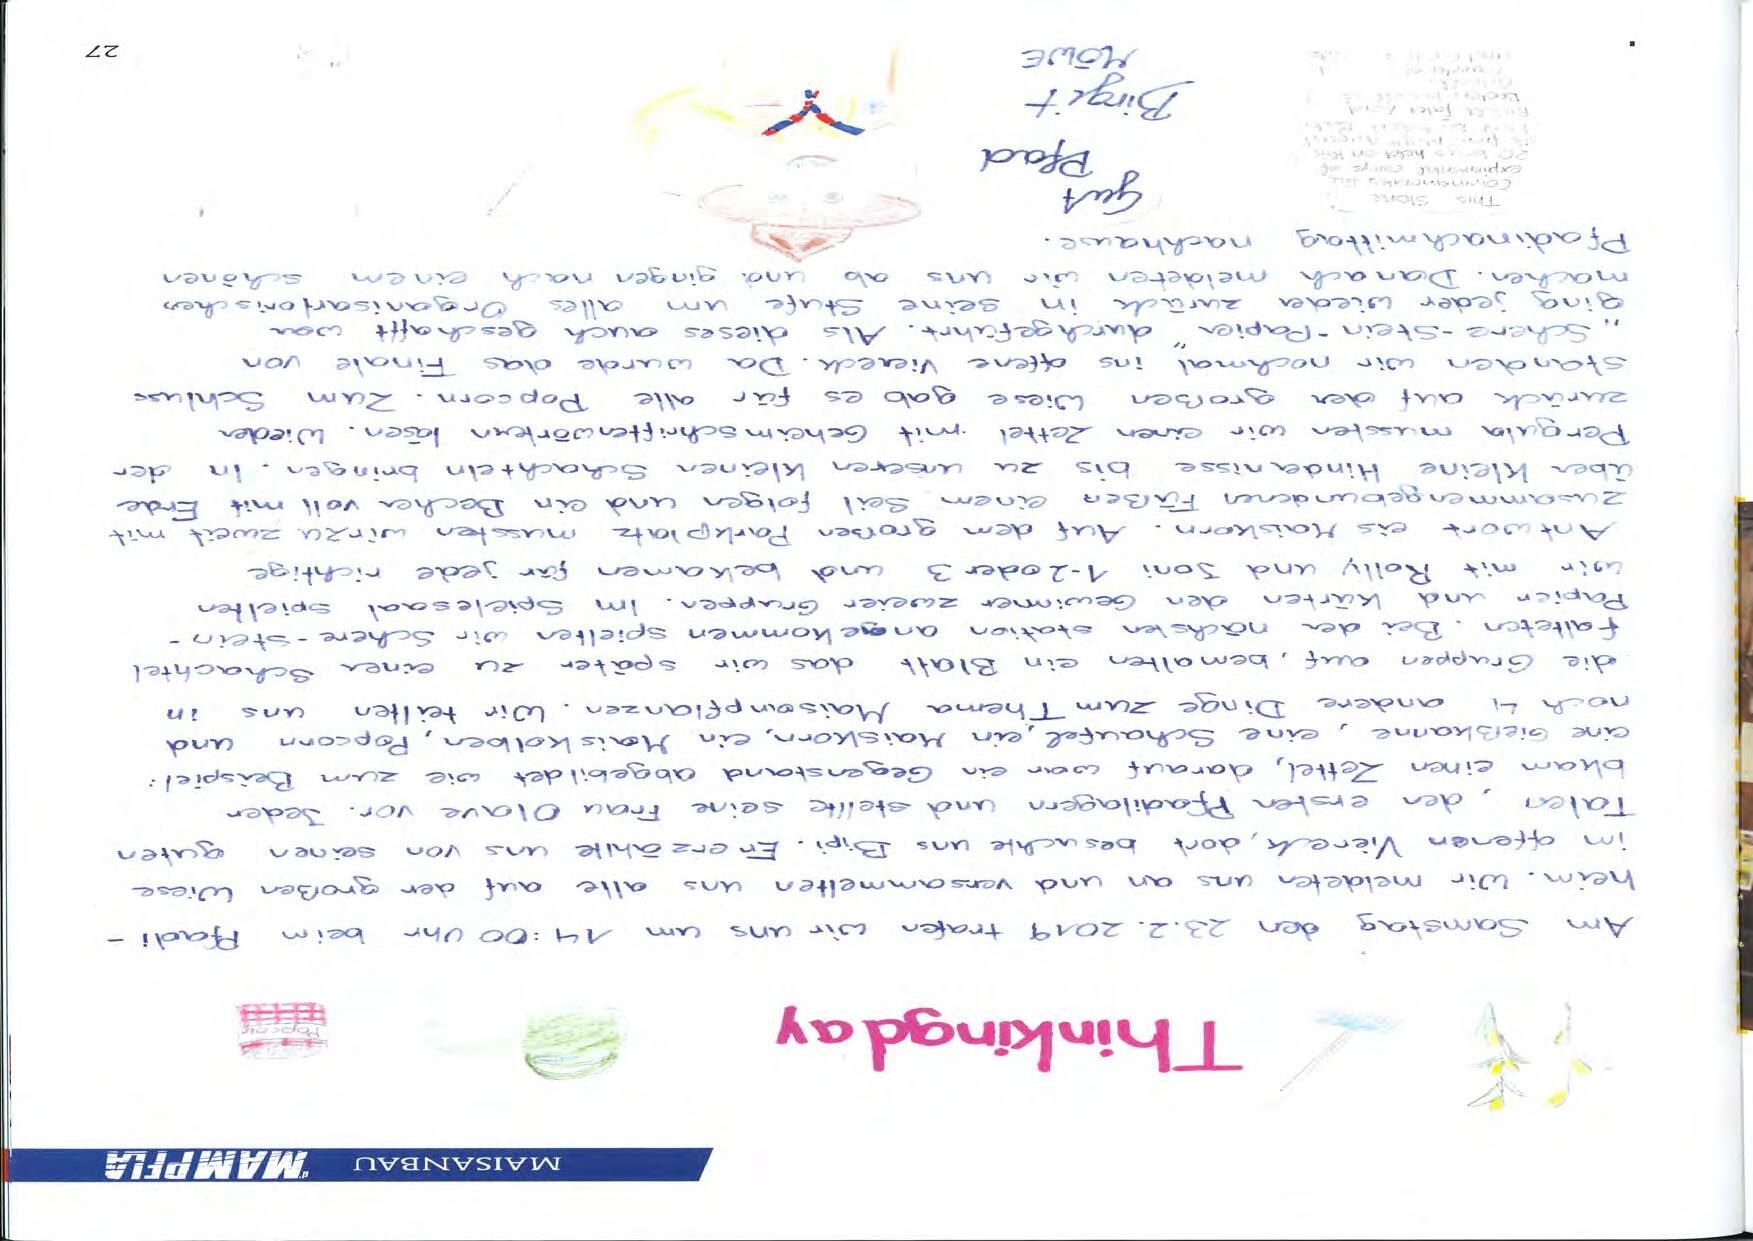 MAISANBAU MAMPFLA
Thinkingday
Popcorn
Am Samstag den 23.2.2019 trafen wir uns um 14:00 Uhr beim Pfadi-
heim. Wir meldeten uns an und versammelten uns alle auf der großen Wiese
im offenen Viereck, dort besuchte uns Bipi. Er erzählte uns von seinen guten
Taten, den ersten Pfadilagern und stellte seine Frau Olave vor. Jeder
bkam einen Zettel, darauf war ein Gegenstand abgebildet wie zum Beispiel:
eine Gießkanne, eine Schaufel, ein Maiskorn, ein Maiskolben, Popcorn und
noch 4 andere Dinge zum Thema Maisanpflanzen. Wir teilten uns in
die Gruppen auf, bemalten ein Blatt das wir später zu einer Schachtel
falteten. Bei der nächsten station angekommen spielten wir Schere-stein-
Papier und kürten den Gewinner zweier Gruppen. Im Spielesaal spielten
wir mit Rolly und Joni 1-2 oder 3 und bekamen für jede richtige
Antwort eis Maiskorn. Auf dem großen Parkplatz mussten wir zu zweit mit
zusammengebundenen Füßen einem Seil folgen und ein Becher voll mit Erde
über kleine Hindernisse bis zu unseren kleinen Schachteln bringen. In der
Pergula mussten wir einen Zettel mit Geheimschriftenwörtern lösen. Wieder
zurück auf der großen Wiese gab es für alle Popcorn. Zum Schluss
standen wir nochmal ins offene Viereck. Da wurde das Finale von
„Schere-Stein-Papier" durchgeführt. Als dieses auch geschafft war
ging jeder wieder zurück in seine Stufe um alles Organisartorisches
machen. Danach meldeten wir uns ab und gingen nach einem schönen
Pfadinachmittag nachhause.
This Stone
Commemorates the
experimental camp of
20 boys held on this
Gut
Pfad
Birgit
Möwe
27